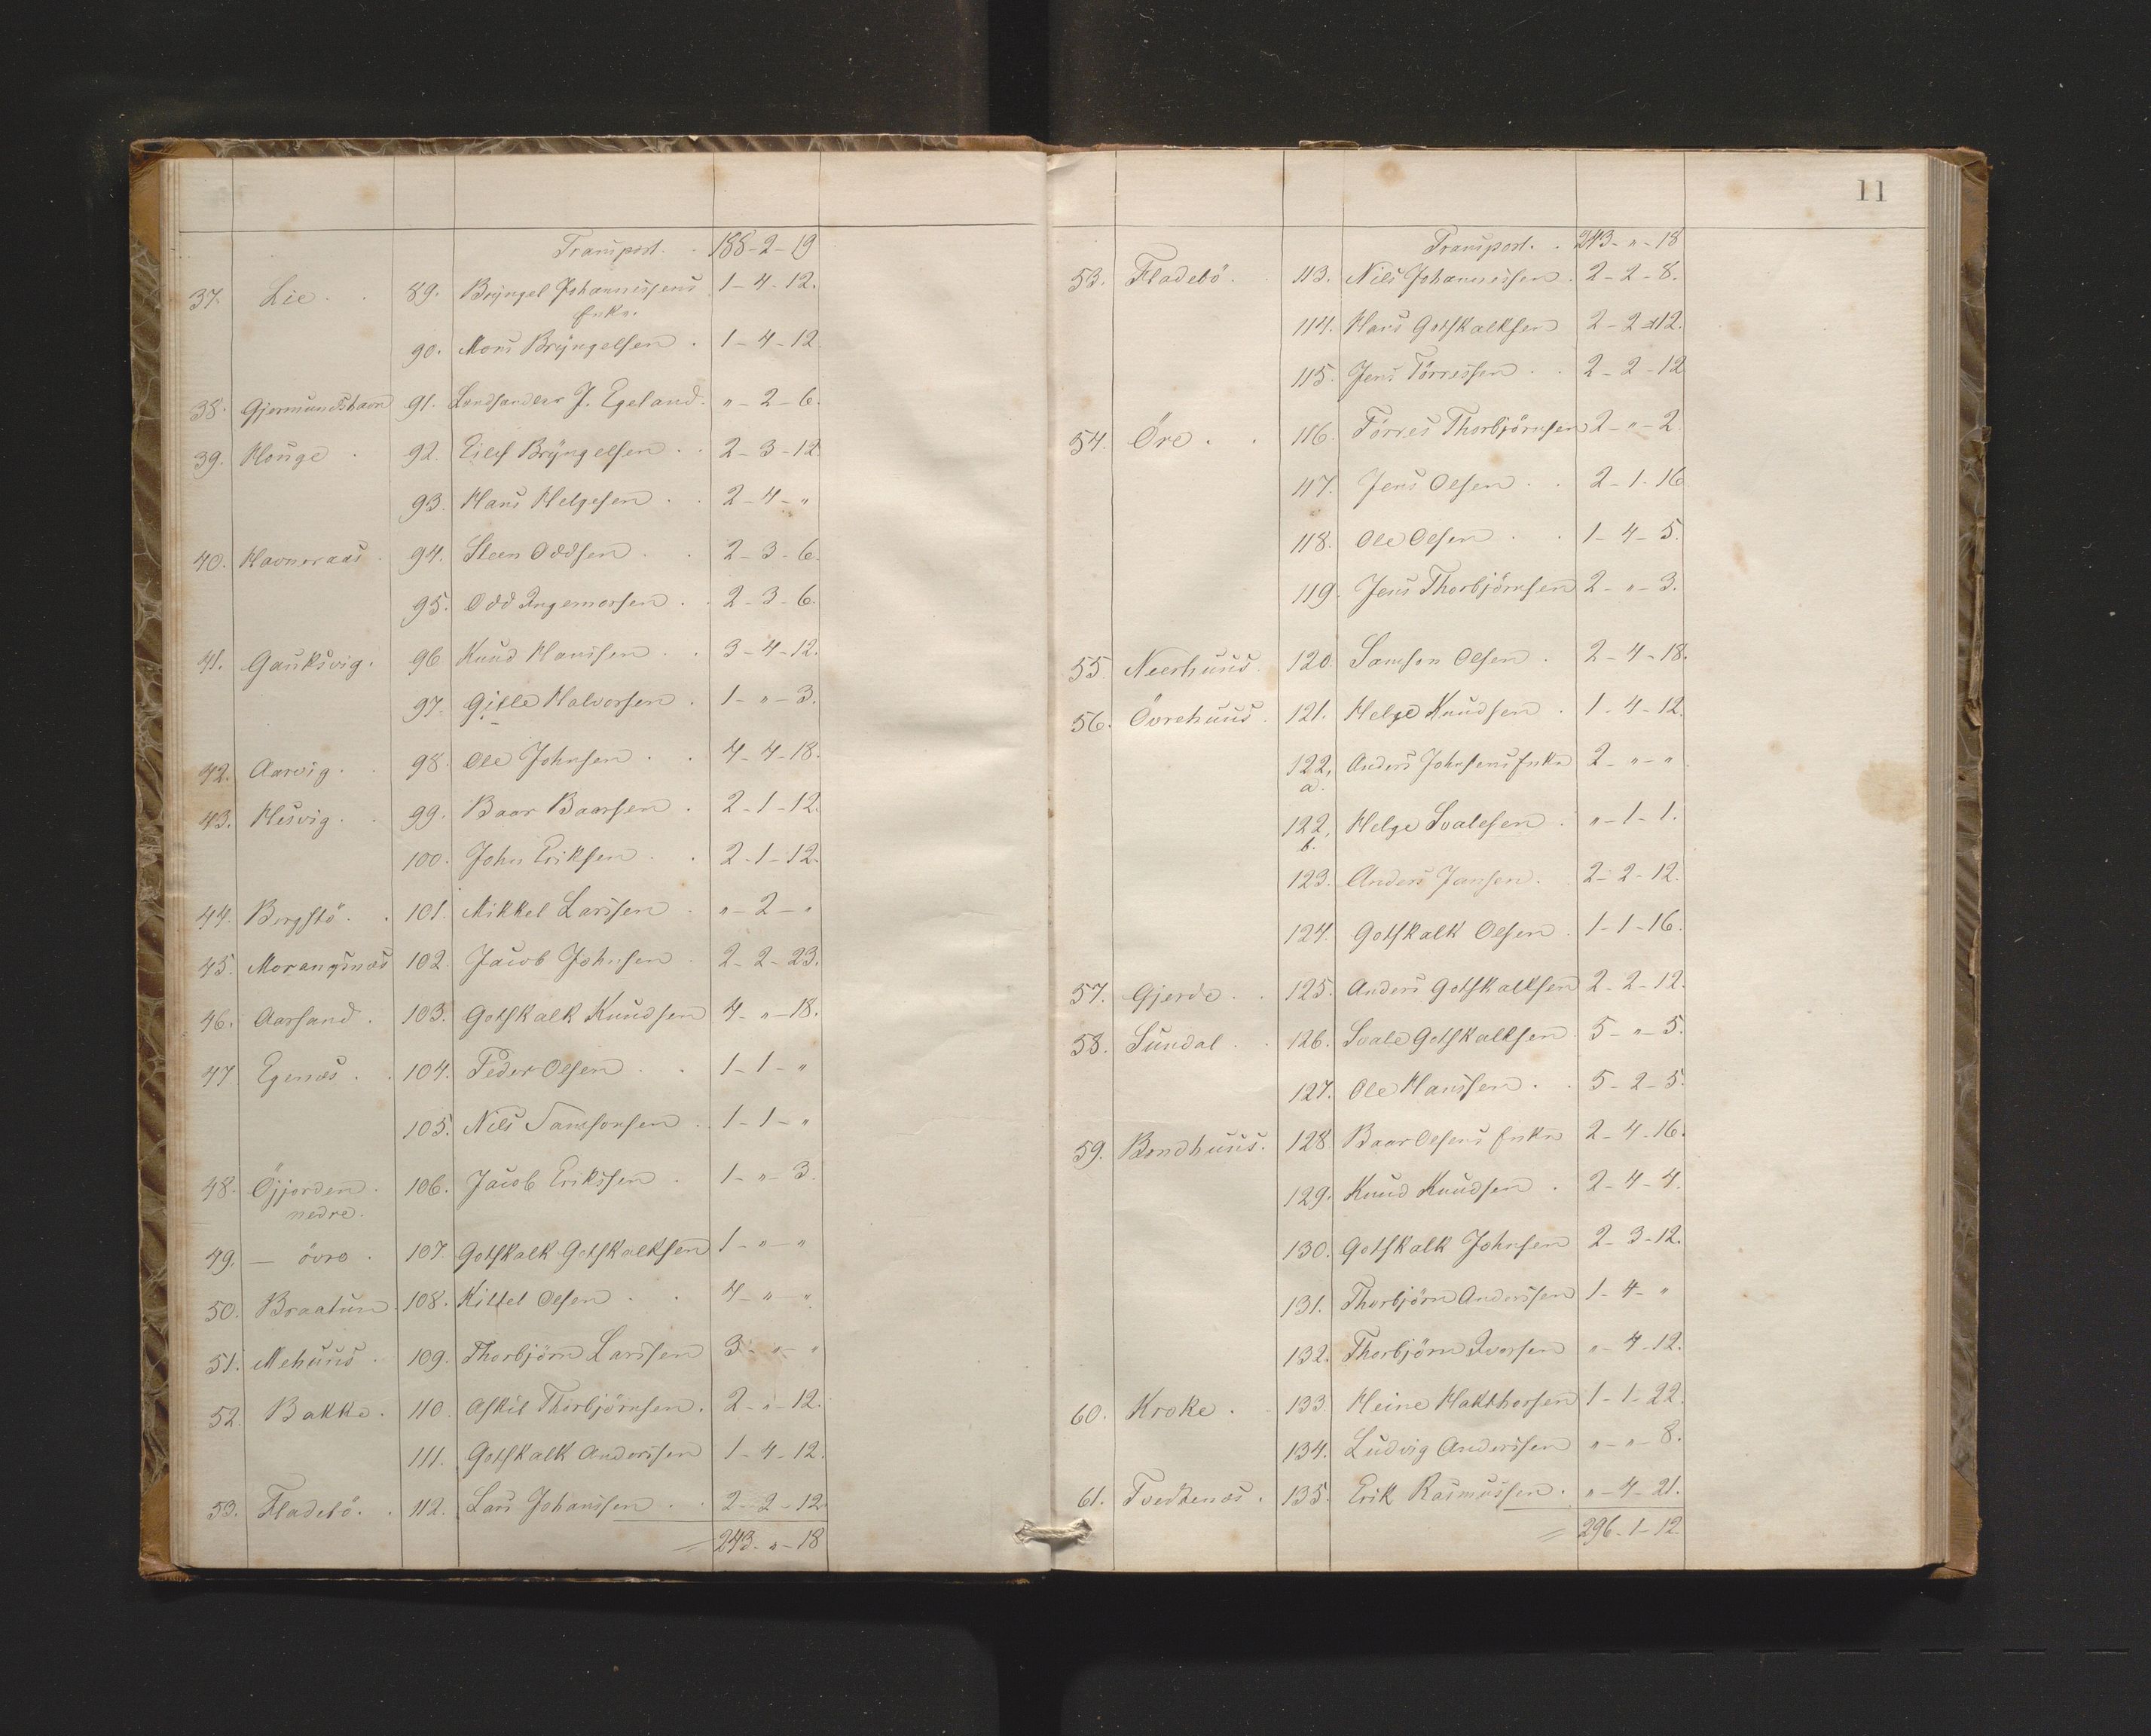 Transport. . 188-2-19
37. Lie. . 89. Brÿngel Johannessens 1-4-12.
Enke.
90. Mons Brÿngelsen . 1-4-12.
38. Gjermundshavn 91. Landhandler J. Egeland. "-2-6.
39. Houge . 92. Eilef Brÿngelsen . . 2-3-12
93. Hans Helgesen . . 2-4-"
40. Havneraas . 94. Steen Oddsen . . 2-3-6.
95. Odd Ingemorsen . . 2-3-6.
41. Gauksvig. 96 Knud Hanssen . . 3-4-12.
97. Gitle Halvorsen . 1-"-3.
42. Aarvig. . 98. Ole Johnsen . . 4-4-18.
43. Hesvig. . 99. Baar Baarsen . 2-1-12.
100. John Eriksen . . 2-1-12.
44. Bergstö . . 101. Mikkel Larssen . "-2-"
45. Morangsnæs 102. Jacob Johnsen . 2-2-23.
46. Aarsand . 103. Gotskalk Knudsen 4-"-18.
47 Egenæs . . 104. Peder Olsen . . 1-1-"
105. Nils Samsonsen . 1-1-"
48. Öjjorden . 106. Jacob Erikssen . 1-"-3.
nedre.
49. — övre . 107. Gotskalk Gotskalksen 1-"-"
50. Braatun 108. Kittel Olsen . . 4-"-"
51. Mehuus . 109. Thorbjörn Larssen 3-"-"
52. Bakke . 110. Askil Thorbjörnsen . 2-"-12.
111. Gotskalk Anderssen 1-4-12.
53. Fladebö. . 112. Lars Johanssen . . 2-2-12
= 243-"-18
11
Transport. . 243-"-18
53. Fladebö . . 113. Nils Johannessen . 2-2-8.
114. Hans Gotskalksen 2-2-12.
115. Jens Törressen . . 2-2-12
54. Öre . . 116. Törres Thorbjörnsen 2-"-2.
117. Jens Olsen . . 2-1-16
118. Ole Olsen . . 1-4-5.
119. Jens Thorbjörnsen 2-"-3.
55. Neerhuus . 120. Samson Olsen . 2-4-18.
56. Övrehuus . 121. Helge Knudsen . 1-4-12.
122, Anders Johnsens Enke 2-"-"
a.
122, Helge Svalesen . "-1-1.
b.
123. Anders Jansen . . 2-2-12.
124. Gotskalk Olsen . 1-1-16.
57. Gjerde . . 125. Anders Gotskalksen 2-2-12.
58. Sundal . . 126. Svale Gotskalksen . 5-"-5.
127. Ole Hanssen . . 5-2-5.
59. Bondhuus. 128. Baar Olsens Enke 2-4-16.
129. Knud Knudsen . 2-4-4.
130. Gotskalk Johnsen 2-3-12.
131. Thorbjörn Anderssen 1-4-"
132. Thorbjörn Iversen "-4-12.
60. Kroke . . 133. Heine Hakthorsen 1-1-22.
134. Ludvig Anderssen "-"-8.
61. Tvedtenæs . 135. Erik Rasmussen . "-4-21.
= 296-1-12.